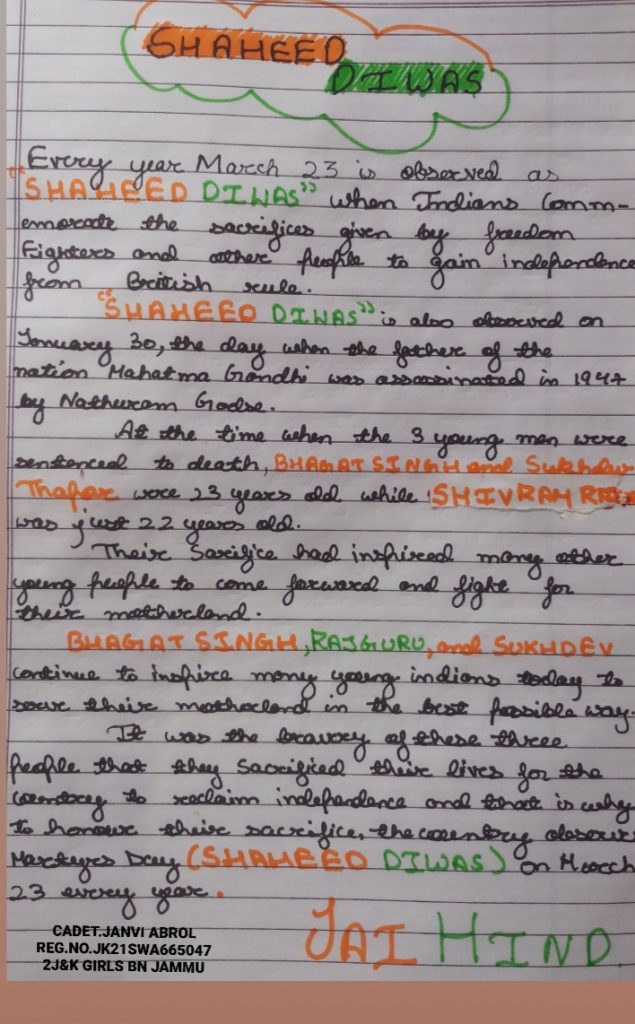 SHAHEED
DIWAS
Every year March 23 is observed as
"SHAHEED DIWAS" when Indians Comm-
emorate the sacrifices given by freedom
Fighters and other people to gain independence
from British rule.
"SHAHEED DIWAS" is also observed on
January 30, the day when the father of the
nation Mahatma Gandhi was assassinated in 1947
by Nathuram Godse.
At the time when the 3 young men were
sentenced to death, BHAGAT SINGH and Sukhdev
Thapar were 23 years old while SHIVRAM
was just 22 years old.
Their Sacrifice had inspired many other
young people to come forward and fight for
their motherland.
BHAGAT SINGH, RAJGURU, and SUKHDEV
continue to inspire many young indians today to
serve their motherland in the best possible way.
It was the bravery of these three
people that they Sacrificed their lives for the
country to reclaim independance and that is why
To honour their sacrifice, the country observes
Martyrs Day (SHAHEED DIWAS) on March
23 every year.
JAI HIND.
CADET.JANVI ABROL
REG.NO.JK21SWA665047
2J&K GIRLS BN JAMMU